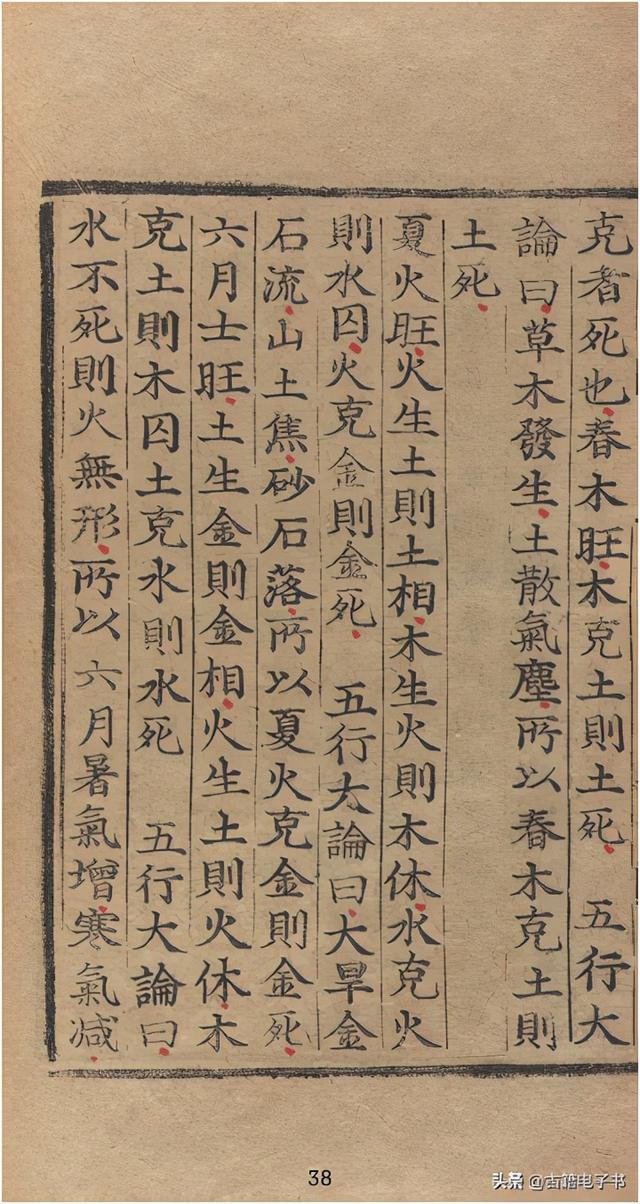 克者死也春木旺木克土則土死 五行大
論曰草木發生土散氣塵所以春木克土則
土死
夏火旺火生土則土相木生火則木休水克火
則水囚火克金則金死 五行大論曰大旱金
石流山土焦砂石落所以夏火克金則金死
六月士旺土生金則金相火生土則火休木
克土則木囚土克水則水死 五行大論曰
水不死則火無形所以六月暑氣增寒氣減
38
头条@古籍电子书